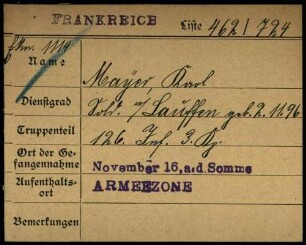 FRANKREICH Liste 462/724
1119
Name Mayer, Karl
Dienstgrad Sold. a/ Lauffen geb. 2.11.96
Truppenteil 126. Inf. 3. Kp.
Ort der Ge-
fangennahme November 16, a.d. Somme
Aufenthalts-
ort ARMEEZONE
Bemerkungen